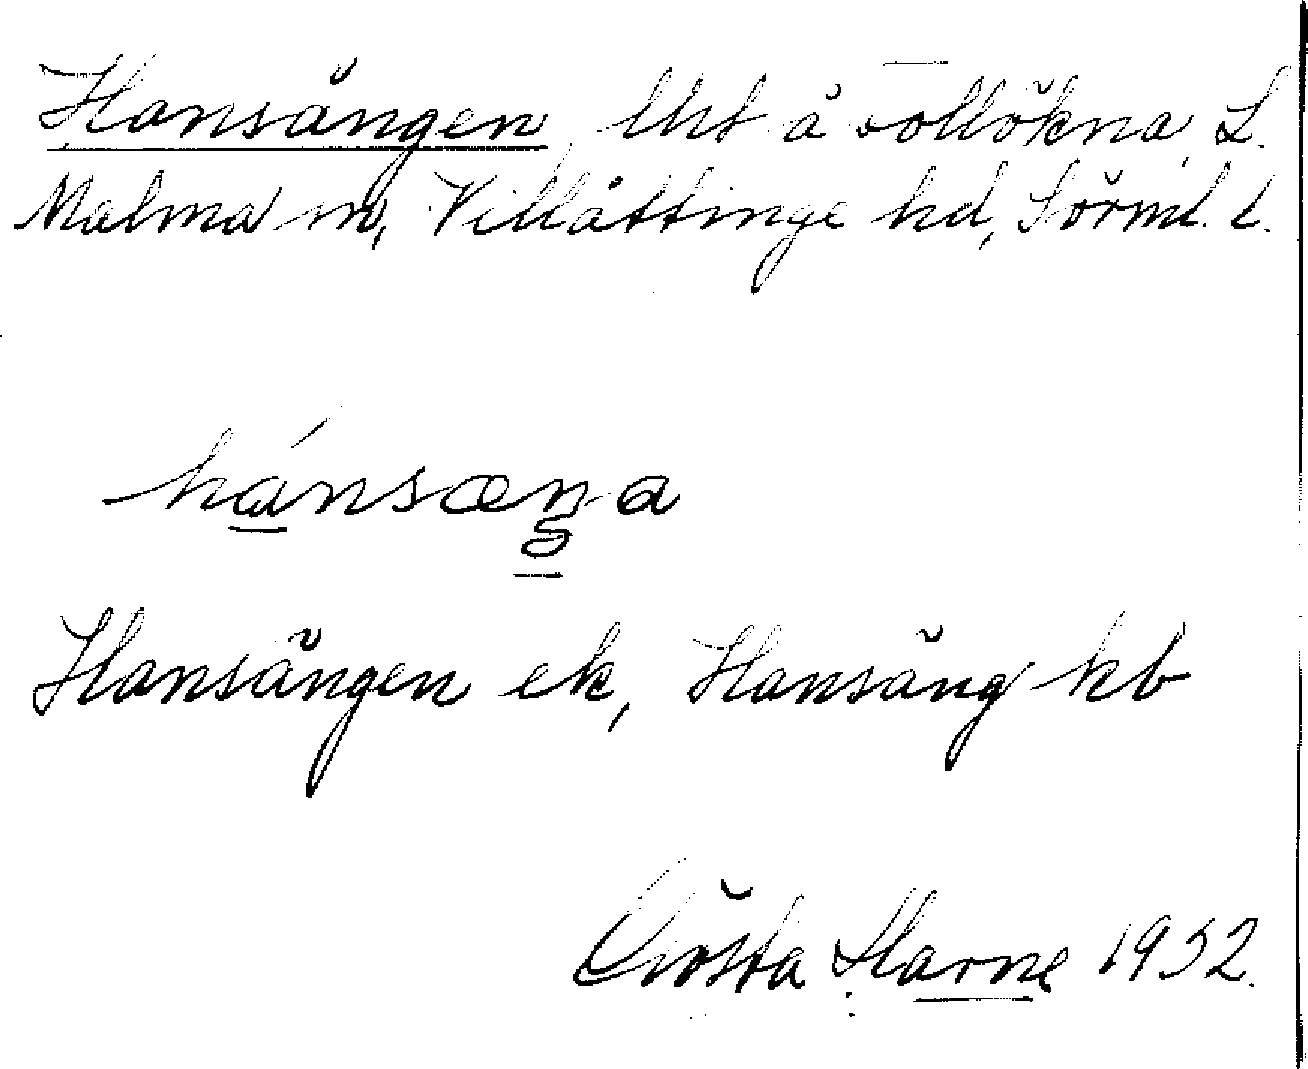 Hansängen, Urt å Tollökna, L.
Malma sn, Villåttinge hd, Sörml. l.
hánsæŋa
Hansängen ek, Hansäng kb
Gösta Harne 1932.